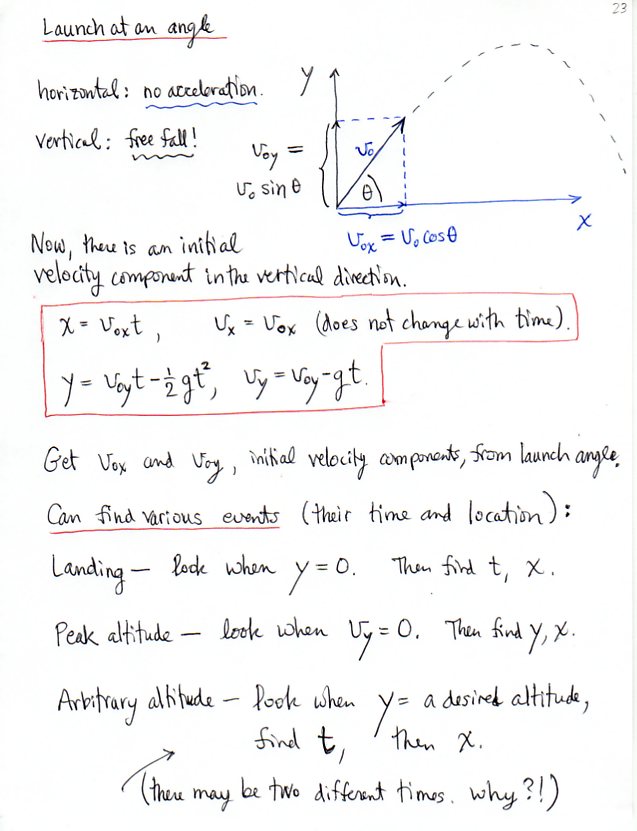 23
Launch at an angle
horizontal: no acceleration.
vertical: free fall!
y
v₀y =
v₀ sin θ
v₀
θ
x
v₀x = v₀ cos θ
Now, there is an initial
velocity component in the vertical direction.
x = v₀xt, vx = v₀x (does not change with time).
y = v₀yt - ½ gt², vy = v₀y - gt.
Get v₀x and v₀y, initial velocity components, from launch angle.
Can find various events (their time and location):
Landing — look when y = 0. Then find t, x.
Peak altitude — look when vy = 0. Then find y, x.
Arbitrary altitude — look when y = a desired altitude,
find t, then x.
(there may be two different times. why?!)